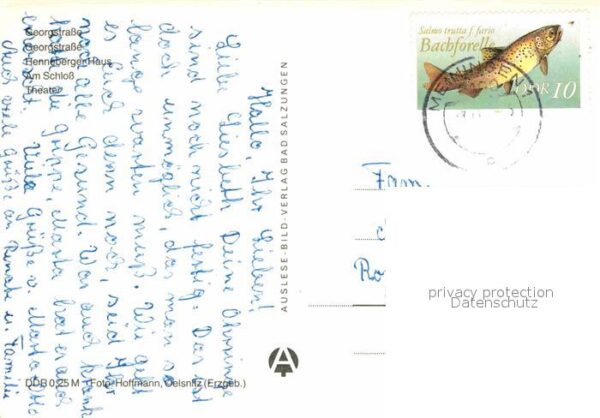 Georgstraße
Georgstraße
Henneberger Haus
Am Schloß
Theater
Hallo, Ihr Lieben!
Liebe Liesbeth Deine Ohrringe
sind noch nicht fertig. Das ist
doch unmöglich, das man so
lange warten muß. Wie geht
es Euch denn noch, seid Ihr
noch alle Gesund. War auch krank
hatte die Grippe, Marta hat er auch
Viele Grüße v. Marta
Auch viele Grüße an Renate u. Familie
DDR 0,25 M Foto: Hoffmann, Oelsnitz (Erzgeb.)
AUSLESE-BILD-VERLAG BAD SALZUNGEN
A
Salmo trutta f. fario
Bachforelle
DDR 10
Fam.
Ro
privacy protection
Datenschutz